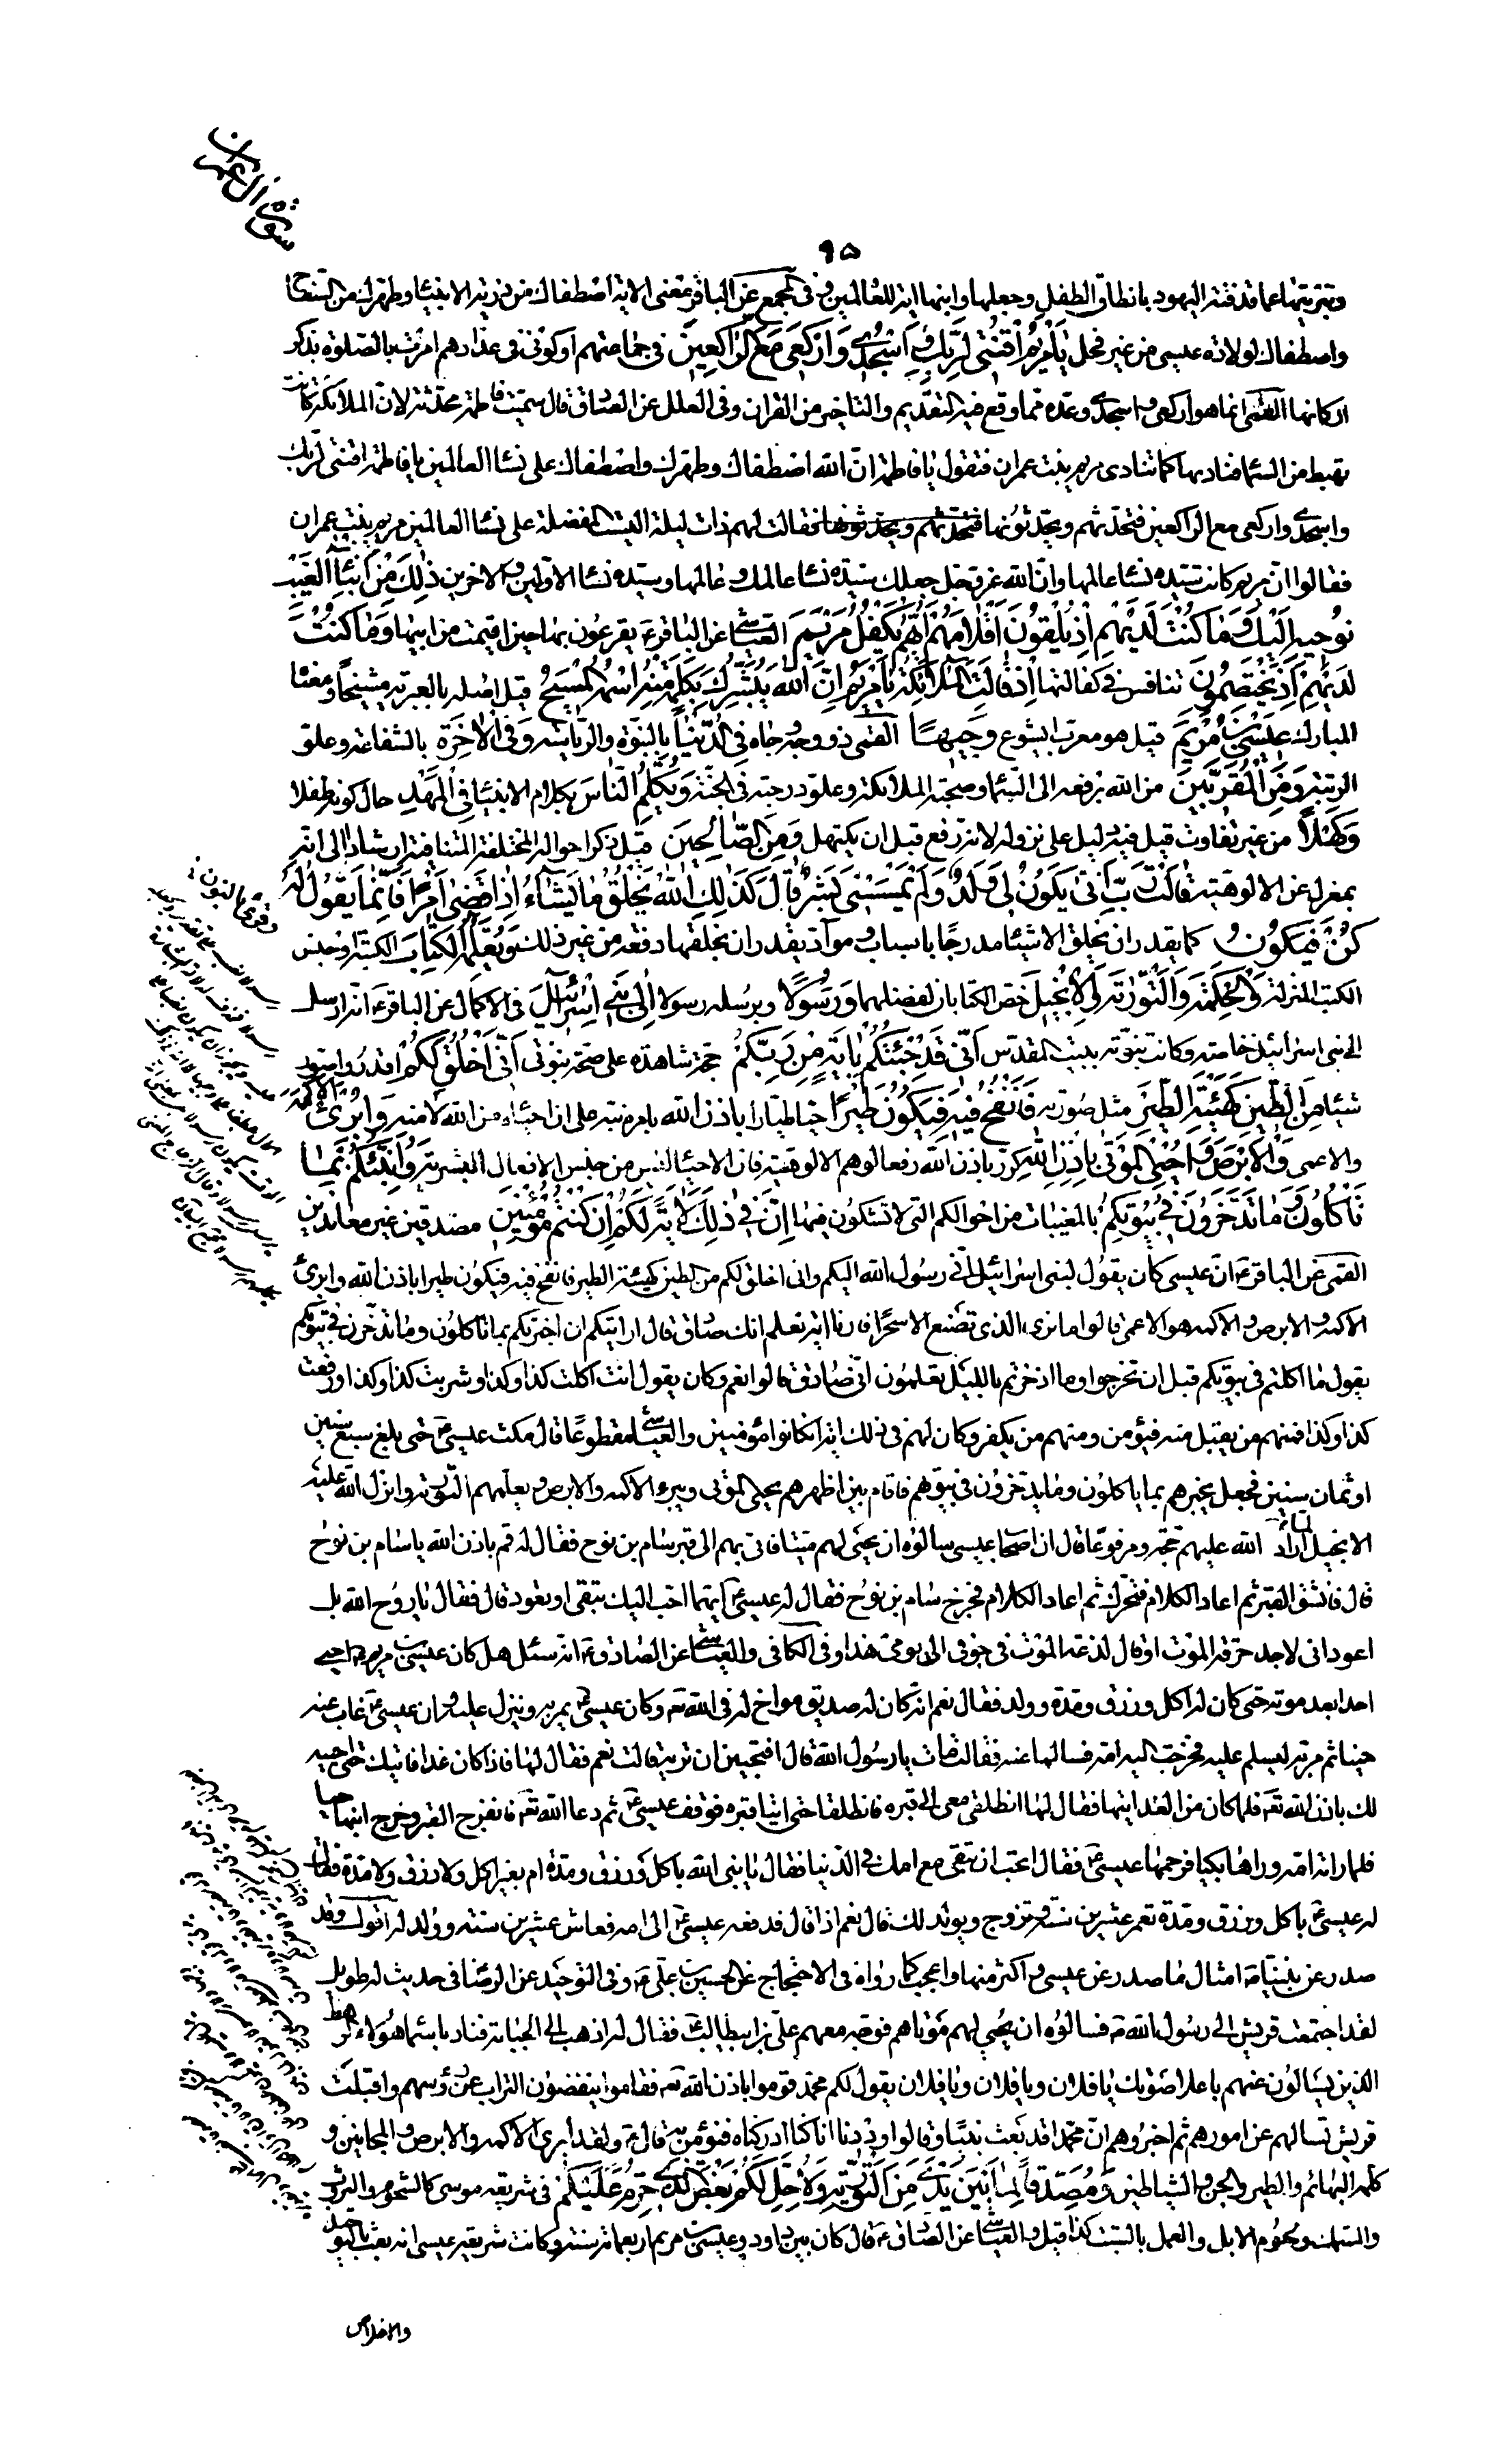 سورة ال عمران
٩٥
وتبريتها عما قذفته اليهود بانطاق الطفل وجعلها وابنها اية للعالمين وفي المجمع عن الباقر معنى الاية اصطفاك من ذرية الانبياء وطهرك من السفاح
واصطفاك لولادة عيسى من غير فحل يَا مَرْيَمُ اقْنُتِي لِرَبِّكِ وَاسْجُدِي وَارْكَعِي مَعَ الرَّاكِعِينَ في جماعتهم او كوني في عدادهم امرت بالصلوة بذكر
اركانها القمى انما هو اركعي واسجدي وعده مما وقع فيه التقديم والتاخير من القران وفي العلل عن الصادق قال سميت فاطمة محدثة لان الملائكة كانت
تهبط من السماء فتناديها كما تنادى مريم بنت عمران فتقول يا فاطمة ان الله اصطفاك وطهرك واصطفاك على نساء العالمين يا فاطمة اقنتي لربك
واسجدي واركعي مع الراكعين فتحدثهم ويحدثونها فقالت لهم ذات ليلة اليست المفضلة على نساء العالمين مريم بنت عمران
فقالوا ان مريم كانت سيدة نساء عالمها وان الله عز وجل جعلك سيدة نساء عالمك وعالمها وسيدة نساء الاولين والاخرين ذَلِكَ مِنْ أَنْبَاءِ الْغَيْبِ
نُوحِيهِ إِلَيْكَ وَمَا كُنْتَ لَدَيْهِمْ إِذْ يُلْقُونَ أَقْلَامَهُمْ أَيُّهُمْ يَكْفُلُ مَرْيَمَ العياشي عن الباقر ع يقرعون بها حين ايتمت من ابيها وَمَا كُنْتَ
لَدَيْهِمْ إِذْ يَخْتَصِمُونَ تنافس في كفالتها إِذْ قَالَتِ الْمَلَائِكَةُ يَا مَرْيَمُ إِنَّ اللَّهَ يُبَشِّرُكِ بِكَلِمَةٍ مِنْهُ اسْمُهُ الْمَسِيحُ قيل اصله بالعبرية مشيحا ومعناه
المبارك عِيسَى بْنُ مَرْيَمَ قيل هو معرب ايشوع وَجِيهًا القمى ذو وجه وجاه فِي الدُّنْيَا بالنبوة والرياسة وَفِي الْآخِرَةِ بالشفاعة وعلو
الرتبة وَمِنَ الْمُقَرَّبِينَ من الله برفعه الى السماء وصحبته الملائكة وعلو درجته في الجنة وَيُكَلِّمُ النَّاسَ بكلام الانبياء فِي الْمَهْدِ حال كونه طفلا
وَكَهْلًا من غير تفاوت قيل فيه دليل على نزوله لانه رفع قبل ان يكتهل وَمِنَ الصَّالِحِينَ قيل ذكر احواله المختلفة المتنافية ارشادا الى انه
بمعزل عن الالوهية قَالَتْ رَبِّ أَنَّى يَكُونُ لِي وَلَدٌ وَلَمْ يَمْسَسْنِي بَشَرٌ قَالَ كَذَلِكِ اللَّهُ يَخْلُقُ مَا يَشَاءُ إِذَا قَضَى أَمْرًا فَإِنَّمَا يَقُولُ لَهُ
كُنْ فَيَكُونُ كما يقدر ان يخلق الاشياء مدرجا باسباب ومواد يقدر ان يخلقها دفعة من غير ذلك وَيُعَلِّمُهُ الْكِتَابَ الكتبة او جنس
الكتب المنزلة وَالْحِكْمَةَ وَالتَّوْرَيةَ وَالْإِنْجِيلَ خص الكتابان لفضلهما وَرَسُولًا ويرسله رسولا إِلَى بَنِي إِسْرَائِيلَ في الاكمال عن الباقر ع انه ارسل
الى بني اسرائيل خاصة وكانت نبوته ببيت المقدس أَنِّي قَدْ جِئْتُكُمْ بِآيَةٍ مِنْ رَبِّكُمْ حجة شاهدة على صحة نبوتي أَنِّي أَخْلُقُ لَكُمْ اقدر واصور
شيئا مِنَ الطِّينِ كَهَيْئَةِ الطَّيْرِ مثل صورته فَأَنْفُخُ فِيهِ فَيَكُونُ طَيْرًا حيا طيارا باذن الله بامره نبه على ان احياءه من الله لا منه وَأُبْرِئُ الْأَكْمَهَ
والاعمى وَالْأَبْرَصَ وَأُحْيِي الْمَوْتَى بِإِذْنِ اللَّهِ كرر باذن الله دفعا لوهم الالوهية فان الاحياء ليس من جنس الافعال البشرية وَأُنَبِّئُكُمْ بِمَا
تَأْكُلُونَ وَمَا تَدَّخِرُونَ فِي بُيُوتِكُمْ بالمغيبات من احوالكم التي لا تشكون فيها إِنَّ فِي ذَلِكَ لَآيَةً لَكُمْ إِنْ كُنْتُمْ مُؤْمِنِينَ مصدقين غير معاندين
القمى عن الباقر ع ان عيسى كان يقول لبني اسرائيل اني رسول الله اليكم واني اخلق لكم من الطين كهيئة الطير فانفخ فيه فيكون طيرا باذن الله وابرئ
الاكمه والابرص والاكمه هو الاعمى قالوا ما نرى الذي تصنع الا سحرا فارنا اية نعلم انك صادق قال ارايتكم ان اخبرتكم بما تاكلون وما تدخرون في بيوتكم
يقول ما اكلتم في بيوتكم قبل ان تخرجوا وما ادخرتم بالليل تعلمون اني صادق قالوا نعم وكان يقول انت اكلت كذا وكذا وشربت كذا وكذا ورفعت
كذا وكذا فمنهم من يقبل منه فيؤمن ومنهم من يكفر وكان لهم في ذلك اية ان كانوا مؤمنين والعياشي مقطوعا قال مكث عيسى ع حتى بلغ سبع سنين
او ثمان سنين فجعل يخبرهم بما ياكلون وما يدخرون في بيوتهم فاقام بين اظهرهم يحيى الموتى ويبرئ الاكمه والابرص ويعلمهم التورية وانزل الله عليه
الانجيل لما اراد الله عليهم حجة ومرفوعا قال ان اصحاب عيسى سالوه ان يحيى لهم ميتا فاتى بهم الى قبر سام بن نوح فقال له قم باذن الله يا سام بن نوح
قال فانشق القبر ثم اعاد الكلام فتحرك ثم اعاد الكلام فخرج سام بن نوح فقال له عيسى ع ايهما احب اليك تبقى او تعود قال فقال يا روح الله بل
اعود اني لاجد حرقة الموت او قال لذعة الموت في جوفي الى يومي هذا وفي الكافي والعياشي عن الصادق ع انه سئل هل كان عيسى بن مريم احيى
احدا بعد موته حتى كان له اكل ورزق ومدة وولد فقال نعم انه كان له صديق مواخ له في الله تع وكان عيسى ع يمر به وينزل عليه وان عيسى ع غاب عنه
حينا ثم مر به ليسلم عليه فخرجت اليه امه فسالها عنه فقالت مات يا رسول الله قال افتحبين ان تريه قالت نعم فقال لها فاذا كان غدا فاتيك حتى احييه
لك باذن الله تع فلما كان من الغد اتيها فقال لها انطلقي معي الى قبره فانطلقا حتى اتيا قبره فوقف عيسى ع ثم دعا الله تع فانفرج القبر وخرج ابنها حيا
فلما راته امه وراها بكيا فرحمها عيسى ع فقال اتحب ان تبقى مع امك في الدنيا فقال يا نبي الله باكل ورزق ومدة ام بغير اكل ولا رزق ولا مدة فقال
له عيسى ع باكل ورزق ومدة تعمر عشرين سنة وتزوج ويولد لك قال نعم اذا قال فدفعه عيسى ع الى امه فعاش عشرين سنة وولد له اقول وقد
صدر عن نبينا ص امثال ما صدر عن عيسى واكثر منها واعجب كما رواه في الاحتجاج عن الحسين بن علي ع وفي التوحيد عن الرضا في حديث له طويل
لقد اجتمعت قريش الى رسول الله ص فسالوه ان يحيي لهم موتاهم فوجه معهم علي بن ابيطالب ع فقال له اذهب الى الجبانة فناد باسماء هؤلاء الرهط
الذين يسالون عنهم باعلا صوتك يا فلان ويا فلان ويا فلان يقول لكم محمد قوموا باذن الله تع فقاموا ينفضون التراب عن رؤسهم واقبلت
قريش تسالهم عن امورهم ثم اخبروهم ان محمدا قد بعث نبيا وقالوا وددنا انا كنا ادركناه فنؤمن به قال ع ولقد ابرئ الاكمه والابرص والمجانين و
كلمه البهائم والطير والجن والشياطين وَمُصَدِّقًا لِمَا بَيْنَ يَدَيَّ مِنَ التَّوْرَيةِ وَلِأُحِلَّ لَكُمْ بَعْضَ الَّذِي حُرِّمَ عَلَيْكُمْ في شريعة موسى كالشحوم والثرب
والسمك ولحوم الابل والعمل بالسبت كذا قيل والعياشي عن الصادق ع قال كان بين داود وعيسى بن مريم اربعمائة سنة وكانت شريعة عيسى انه بعث بالتوحيد
والاخلاص
وقرئ بالنون